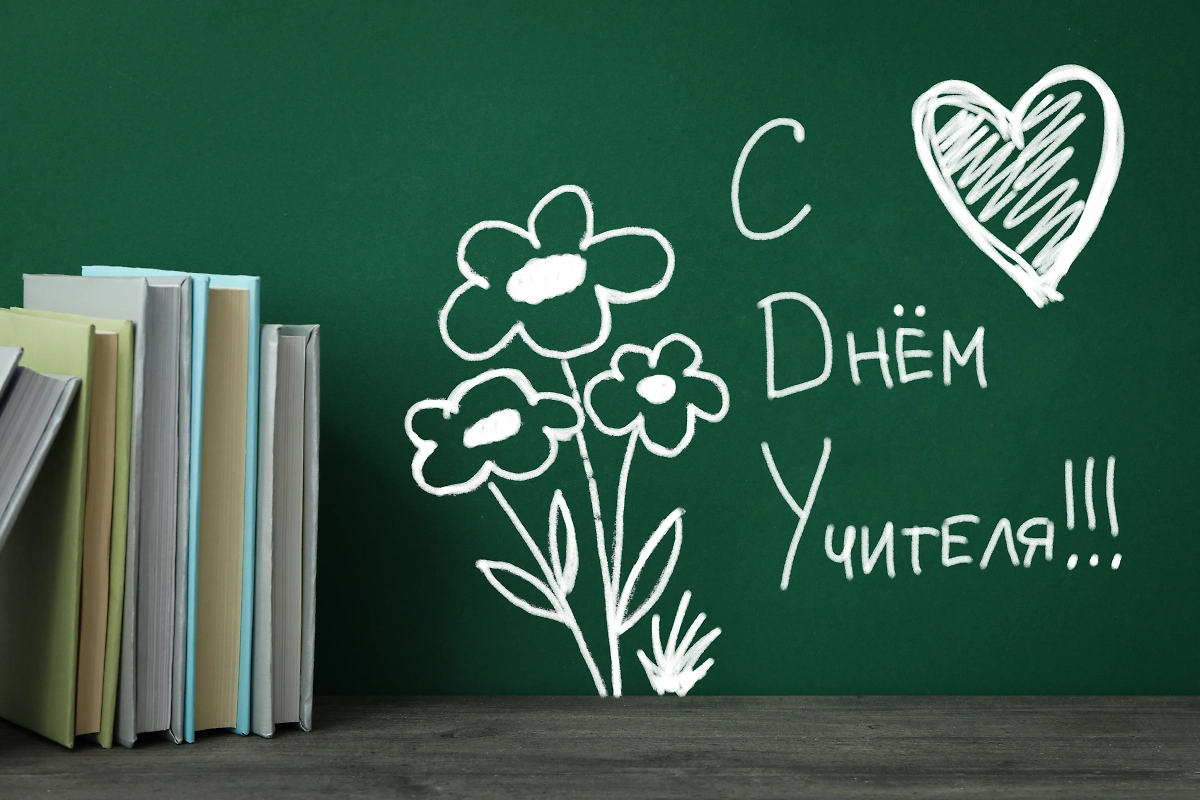 С
Днём
Учителя!!!